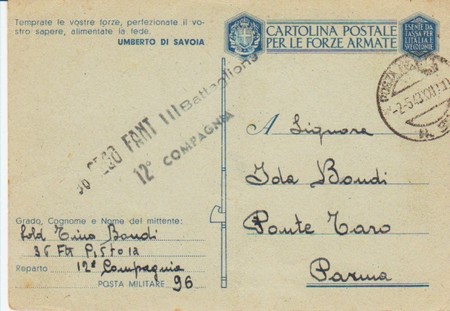 Temprate le vostre forze, perfezionate il vo-
stro sapere, alimentate la fede.
UMBERTO DI SAVOIA
CARTOLINA POSTALE
PER LE FORZE ARMATE
ESENTE DA
TASSA PER
L'ITALIA E
36° REGG FANT III Battaglione
12° COMPAGNIA
POSTA
-2.5.43.XXI
N.
A Signora
Ida Bondi
Ponte Taro
Parma
Grado, Cognome e Nome del mittente:
Sold Tino Bondi
36 Ftr Pistoia
Reparto 12ª Compagnia
POSTA MILITARE 96